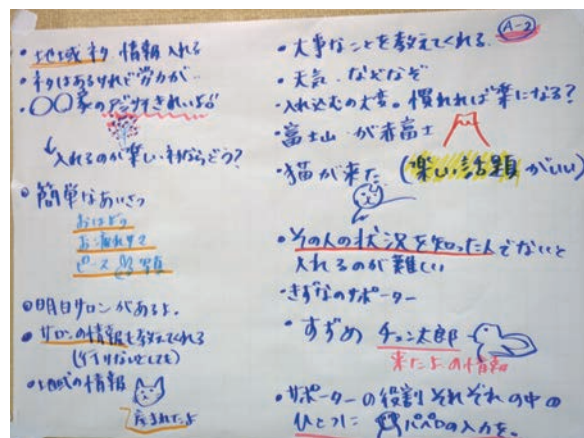 A-2
・地域ネタ 情報入れる
・ネタはあるけれど労力が
・〇〇家の さきれいよ
入れるのが楽しいネタならどう?
・簡単なあいさつ
おはよう
お疲れサマ
ピース 写真
・明日サロンがあるよ.
・サロンの情報を教えてくれる
(行けないとしても)
・地域の情報
産まれたよ
・大事なことを教えてくれる.
・天気 なぞなぞ
・入れ込むの大変。慣れれば楽になる?
・富士山 が赤富士
・猫が来た (楽しい話題がいい)
・その人の状況を知った人でないと
入れるのが難しい
・きずなのサポーター
・すずめ チュン太郎
来たよの情報
・サポーターの役割それぞれの中の
ひとつに パペロの入力を。